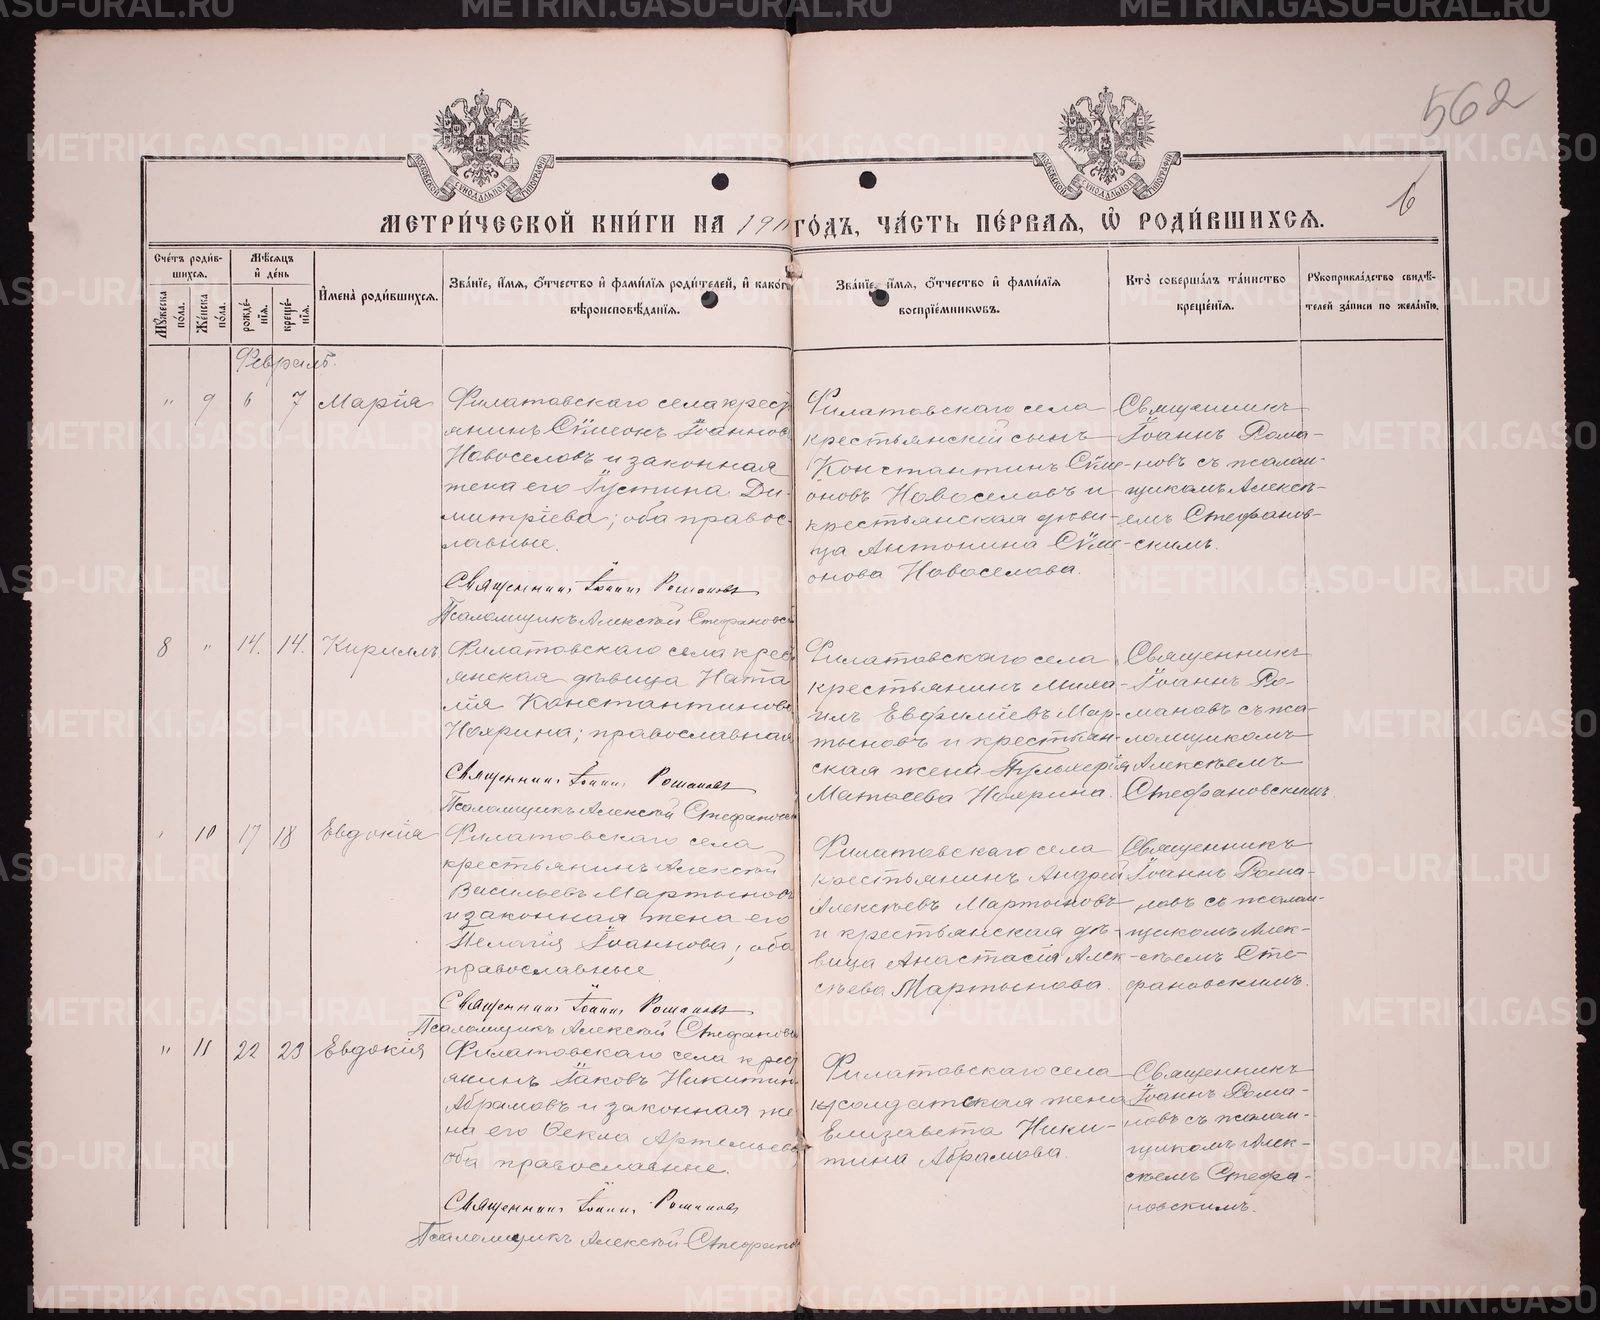 562
6
МЕТРИ́ЧЕСКОЙ КНИ́ГИ НА 191 ГО́ДЪ, ЧА́СТЬ ПЕ́РВАЯ, Ѡ҆ РОДИ́ВШИХСЯ.
Сче́тъ роди́в-
шихся.
Му́жеска по́ла.
Же́нска по́ла.
Мѣ́сяцъ
и҆ де́нь
рожде́-
нїя.
креще́-
нїя.
И҆мена̀ роди́вшихся.
Зва́нїе, и҆́мя, ѻ҆́тчество и҆ фами́лїя роди́телей, и҆ како́гѡ
вѣроисповѣ́данїя.
Зва́нїе, и҆́мя, ѻ҆́тчество и҆ фами́лїя
воспрїе́мниковъ.
Кто̀ соверша́лъ та́инство
креще́нїя.
Рукоприкла́дство свидѣ́-
телей за́писи по жела́нїю.
Февраль.
" 9 6 7 Марія
Филатовскаго села крест
янинъ Сѵмеонъ Іоаннов
Новоселовъ и законная
жена его Іустина Ди-
митріева; оба правос-
лавные.
Священникъ Іоаннъ Романовъ
Псаломщикъ Алексѣй Стефановск
Филатовскаго села
крестьянскій сынъ
Константинъ Сѵме-
оновъ Новоселовъ и
крестьянская дѣви-
ца Антонина Сѵме-
онова Новоселова.
Священникъ
Іоаннъ Рома-
новъ съ псалом-
щикомъ Алексѣ-
емъ Стефанов-
скимъ.
8 " 14. 14. Кириллъ
Филатовскаго села крес
янская дѣвица Ната
лія Константинова
Ноярина; православная
Священникъ Іоаннъ Романовъ
Псаломщикъ Алексѣй Стефановск
Филатовскаго села
крестьянинъ Миха-
илъ Евфиміевъ Мар-
тыновъ и крестьян-
ская жена Пульхерія
Матѳеева Ноярина.
Священникъ
Іоаннъ Ро-
мановъ съ пса-
ломщикомъ
Алексѣемъ
Стефановскимъ.
" 10 17 18 Евдокія
Филатовскаго села
крестьянинъ Алексѣй
Васильевъ Мартыновъ
и законная жена его
Пелагія Іоаннова; оба
православные
Священникъ Іоаннъ Романовъ
Псаломщикъ Алексѣй Стефановск
Филатовскаго села
крестьянинъ Андрей
Алексѣевъ Мартыновъ
и крестьянская дѣ-
вица Анастасія Алек-
сѣева Мартынова.
Священникъ
Іоаннъ Рома-
новъ съ псалом-
щикомъ Алек-
сѣемъ Сте-
фановскимъ.
" 11 22 23 Евдокія
Филатовскаго села крест
янинъ Іаковъ Никитин
Абрамовъ и законная же
на его Ѳекла Артемьева
оба православные.
Священникъ Іоаннъ Романовъ
Псаломщикъ Алексѣй Стефанов
Филатовскаго села
солдатская жена
Елизавета Ники-
тина Абрамова.
Священникъ
Іоаннъ Рома-
новъ съ псалом-
щикомъ Алек-
сѣемъ Стефа-
новскимъ.